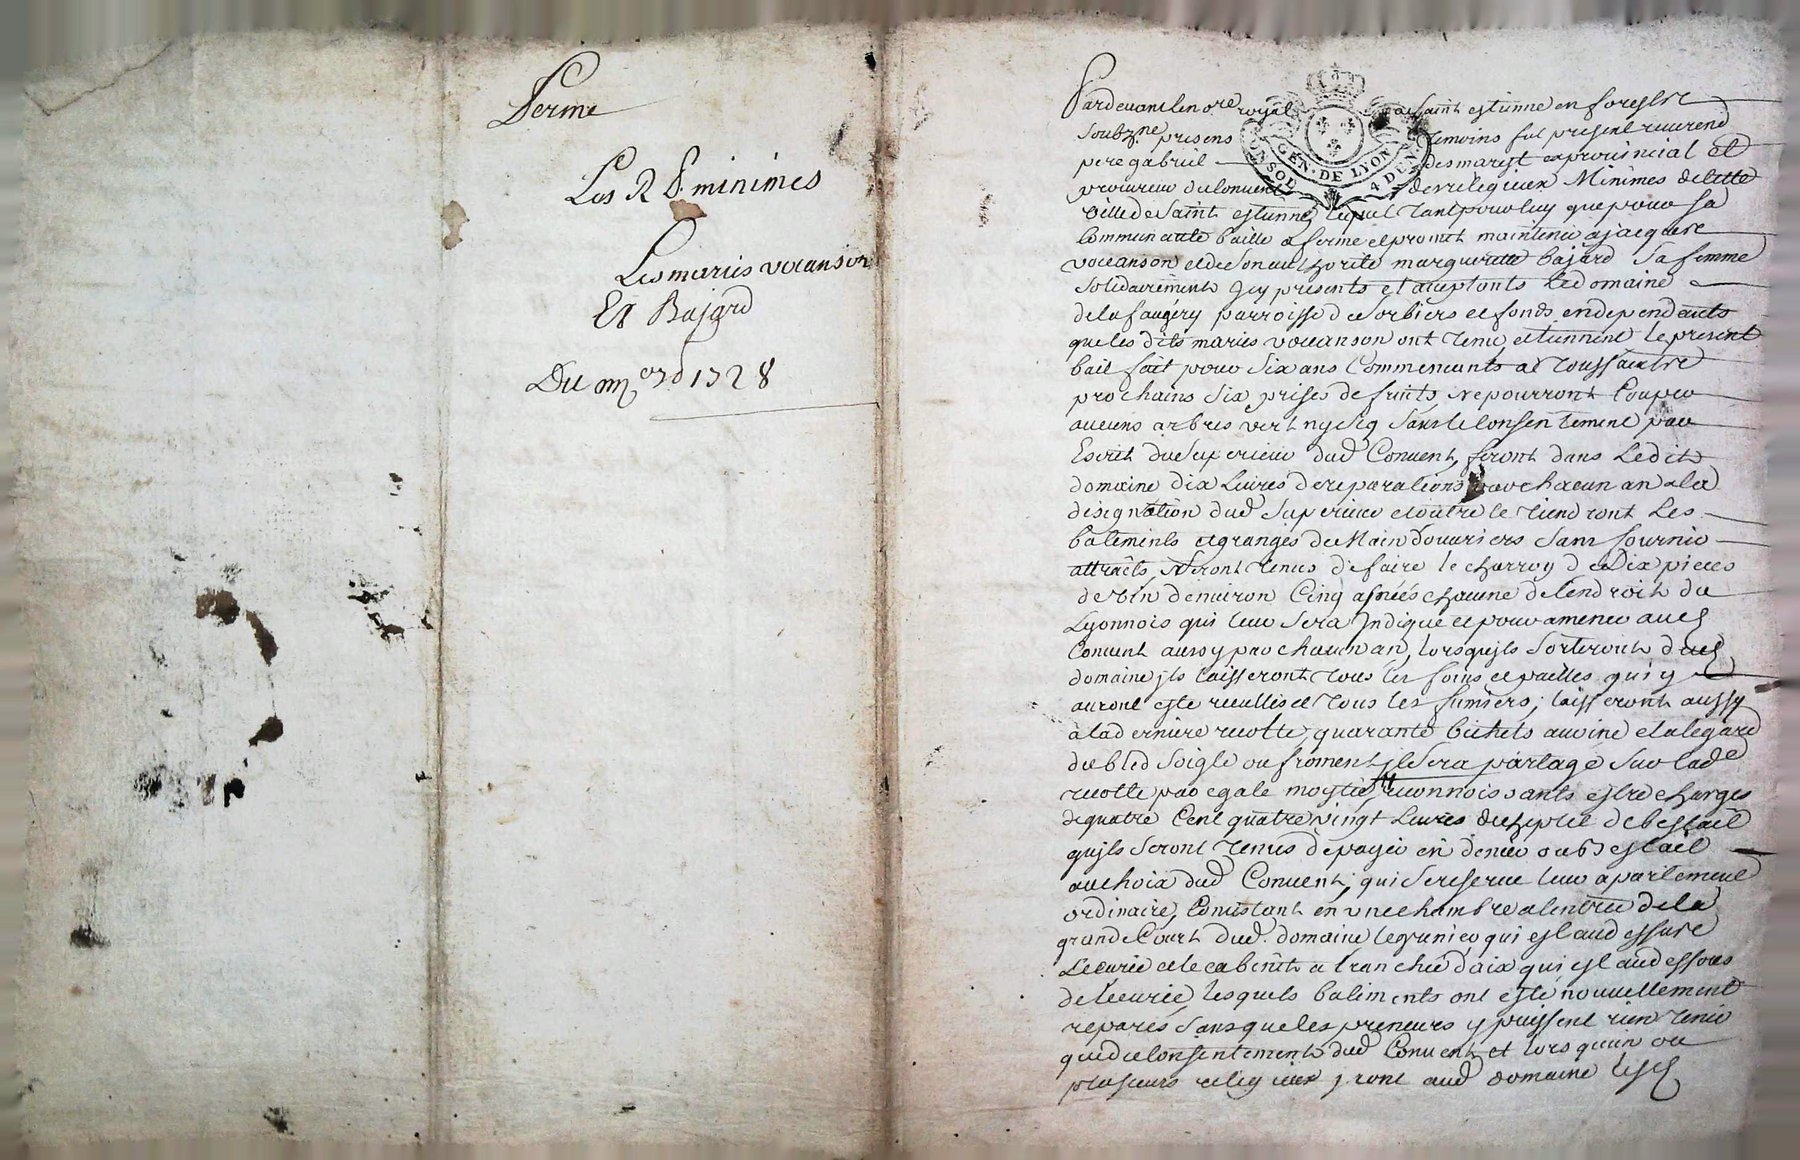 Ferme
Les R P. minimes
Les mariés vocanson
Et Bajard
Du 1728
Pardevant le no.re royal a Saint estienne en forestz
Soubz.ne presens temoins fut present reverend
pere gabriel desmarest exprovincial et
procureur du couvent des religieux Minimes de cette
ville de Saint estienne, lequel tant pour luy que pour sa
communauté baille a ferme et promet maintenir a jacques
vocanson et de son authorité margueritte bajard sa femme
solidairement icy presents et acceptants Le domaine
de la faugery parroisse de Sorbiers et fonds en dependants
que les dits mariés vocanson ont tenu et tiennent le present
bail fait pour six ans commencants a toussaintz
prochains six prises de fruits, ne pourront couper
aucuns arbres vert ny seq sans le consentement par
Escrit du Superieur dud Couvent, feront dans Ledit
domaine dix Livres de reparations par chacun an a la
designation dud Superieur et outre ce tiendront Les
batiments et granges de Main d'ouvriers sans fournir
attraits, Seront tenus de faire le charroy de Dix pieces
de vin d'environ Cinq asnées chacune de l'endroit du
Lyonnois qui leur sera Indiqué et pour amener aud
Couvent aussy par chacun an, lorsqu'ils sortiront dud
domaine ils laisseront tous les foins et pailles qui y
auront esté recullis et tous les fumiers; laisseront aussy
à la derniere recolte quarante bichets avoine et a legard
du bled Soigle ou froment il Sera partagé Sur lad.e
recolte par egale moytié, reconnoissants estre chargés
de quatre Cent quatre vingt Livres de cheptel de bestail
qu'ils seront tenus de payer en denier ou bestail
au choix dud Couvent; qui se reserve leur apartement
ordinaire, Consistant en une chambre a lentrée de la
grande Court dud. domaine le grenier qui est au dessus de
Lecurie et le cabinet a tranché d'aix qui est au dessous
de lecurie, lesquels batiments ont esté nouvellement
reparés, sans que les preneurs y puissent rien tenir
que du consentement dud Couvent et lors qu'un ou
plusieurs religieux iront aud domaine lesd
GEN. DE LYON
4 DEN.